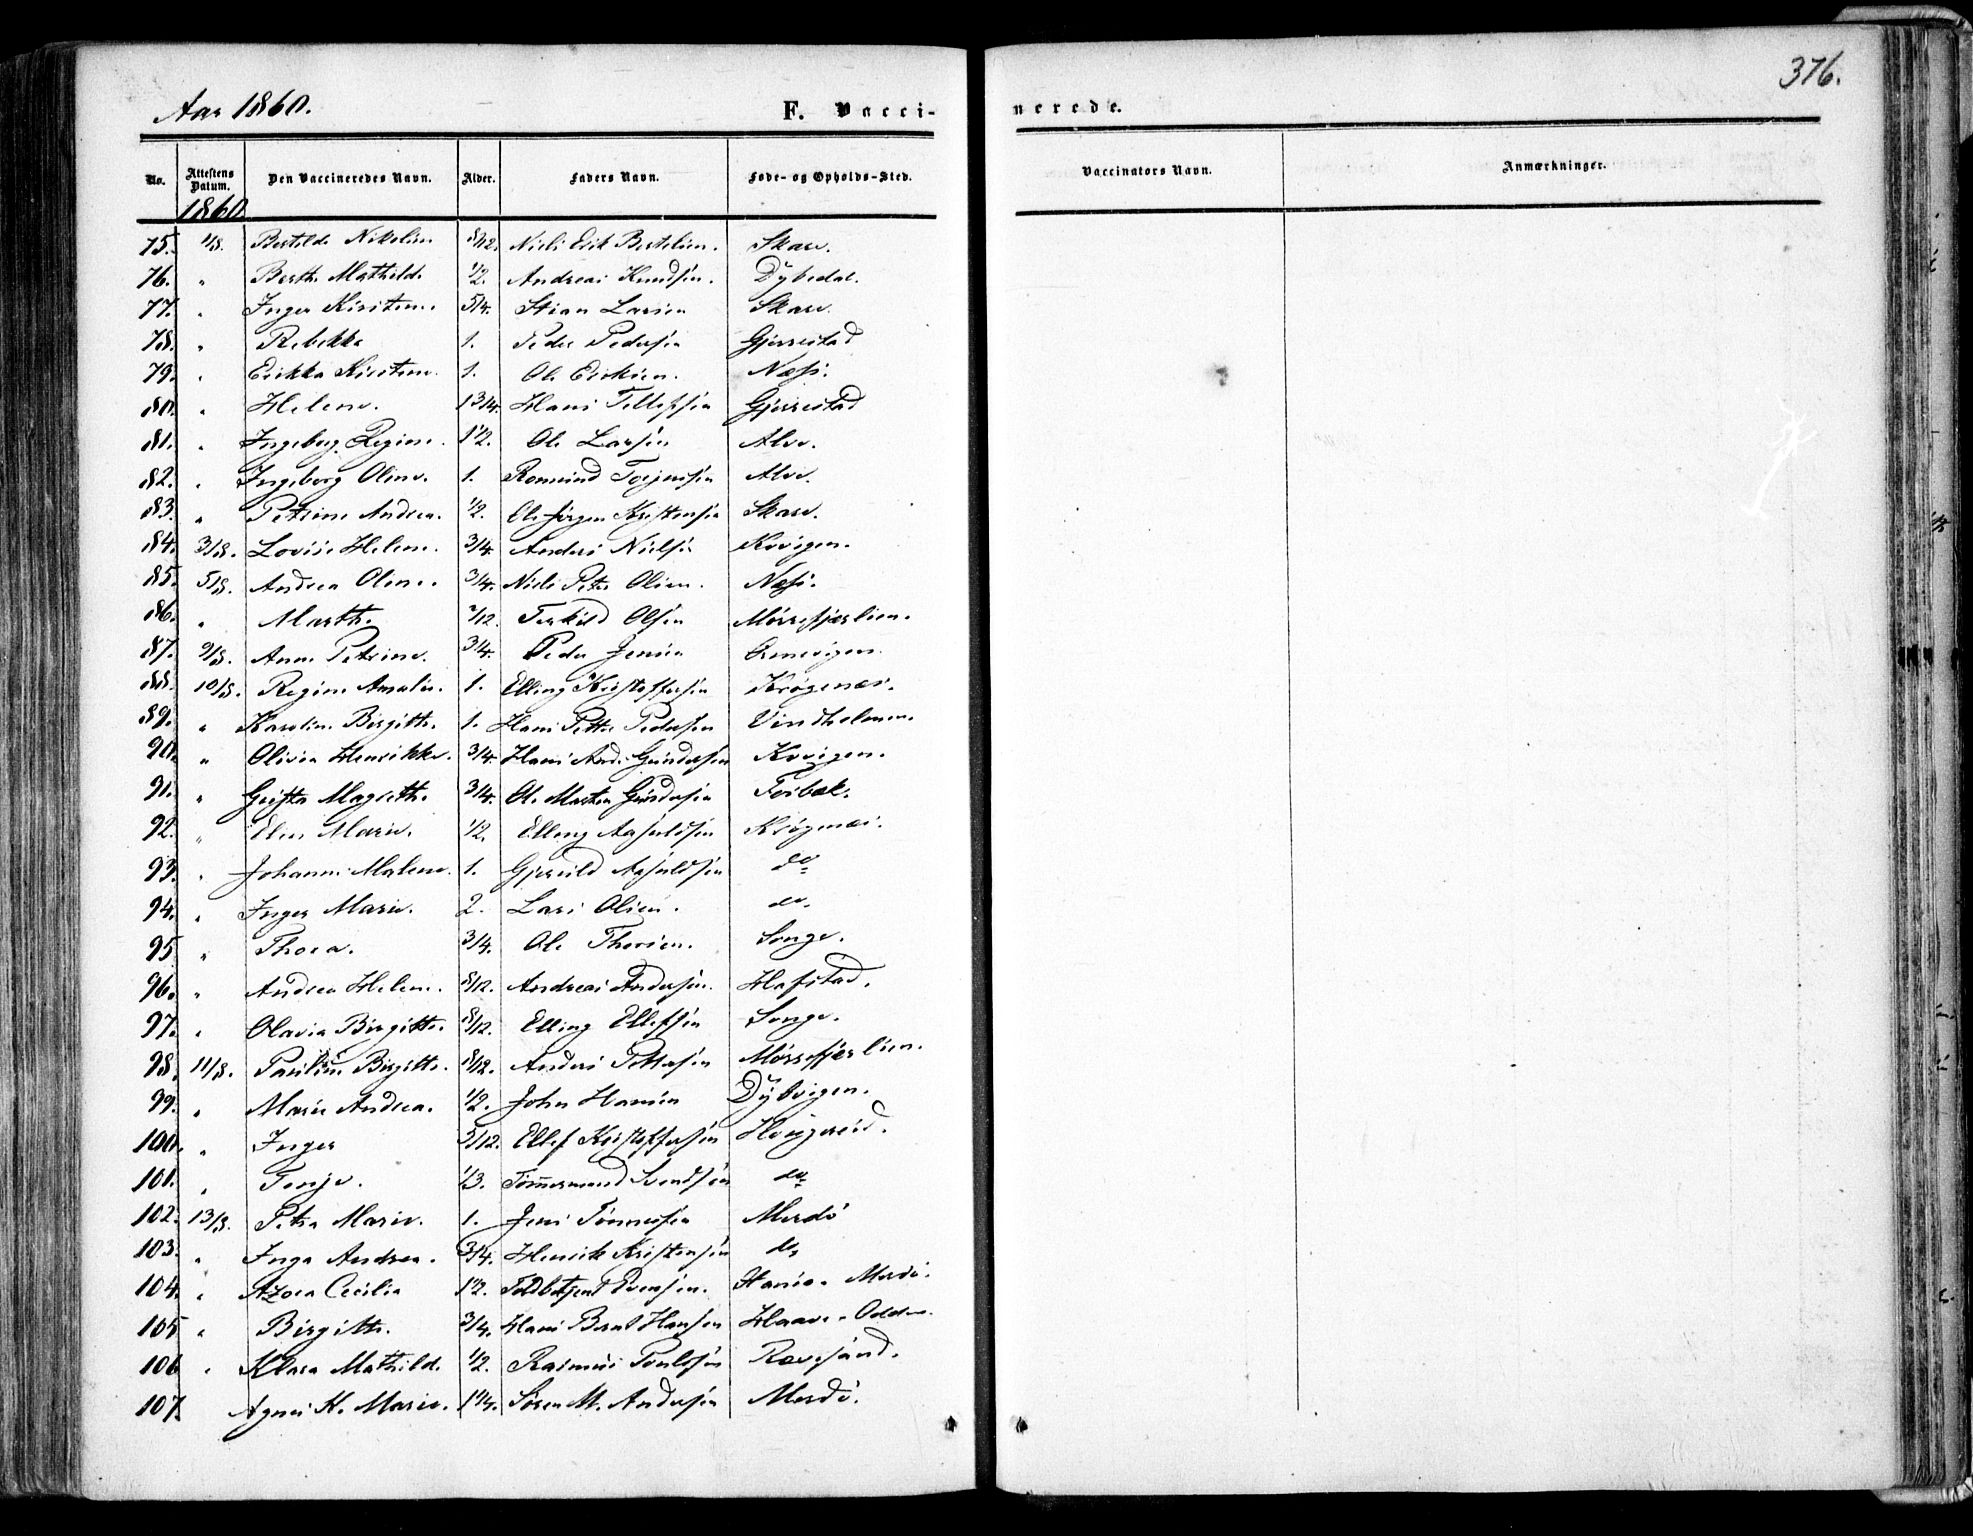 376.
Aar 1860.
F. Vacci-
nerede.
No. Attestens Datum. Den Vaccineredes Navn. Alder. Faders Navn. Føde- og Opholds-Sted. Vaccinators Navn. Anmærkninger.
1860
75. 1/8. Bertilde Nikoline 8/12. Niels Erik Bertelsen. Skare.
76. " Berthe Mathilde 1/2. Andreas Knudsen. Dybedal.
77. " Inger Kirstine. 5/4. Stian Larsen Skare.
78. " Rebekka 1. Peder Pedersen Gjerrestad
79. " Erikka Kirstine. 1. Ole Eriksen. Næss.
80. " Helene. 1 3/4. Hans Tellefsen Gjerrestad
81. " Ingeborg Regine. 1 1/2. Ole Larsen Alve.
82. " Ingeborg Oline. 1. Romund Torjensen Alve.
83. " Petrine Andrea. 1/2. Ole Jörgen Kristensen Skare.
84. 3/8. Lovise Helene. 3/4. Anders Nielsen Kvigen.
85. 5/8. Andrea Oline. 3/4. Niels Peter Olsen. Næss.
86. " Marthe. /12. Terkild Olsen Mörrefjærlien.
87. 9/8. Anne Petrine. 3/4. Peder Jensen
88. 10/8. Regine Amalie. 1. Elling Kristoffersen Krögenæs.
89. " Karoline Birgitte. 1. Hans Petter Pedersen Vindholmen.
90. " Olivia Henrikke. 3/4. Hans And. Gundersen Kvigen.
91. " Magrethe. 3/4. Ole Martin Gundersen Fosbæk.
92. " Elen Marie. 1/2. Elling Aasuldsen Krögenæs.
93. " Johanne Malene. 1. Gjeruld Aasuldsen do
94. " Inger Marie. 2. Lars Olsen. do.
95 " Thora. 3/4. Ole Thorsen. Songe.
96. " Andrea Helene. 8/12. Andreas Andersen. Hafstad.
97. " Olavia Birgitte. 8/12. Elling Ellefsen Songe.
98. 11/8. Pauline Birgitte. 8/12. Anders Pettersen Mörrefjærlien.
99. " Marie Andrea. 1/2. John Hansen Dybvigen.
100. " Inger 5/12. Ellef Kristoffersen
101. " Tonje. 1/3. Tömmermand Svendsen do
102. 13/8. Petra Marie. 1. Jens Tönnesen Merdö
103. " Inga Andrea. 3/4. Henrik Kristensen do
104. " Azora Cecilia 1 1/2. Evensen. Merdö.
105 " Birgitte. 3/4. Hans Bernt Hansen Haave- Odden.
106 " Klara Mathilde. 1/2. Rasmus Poulsen Rævesand.
107. Agnes K. Marie. 1 1/4. Sören M. Andersen Merdö.